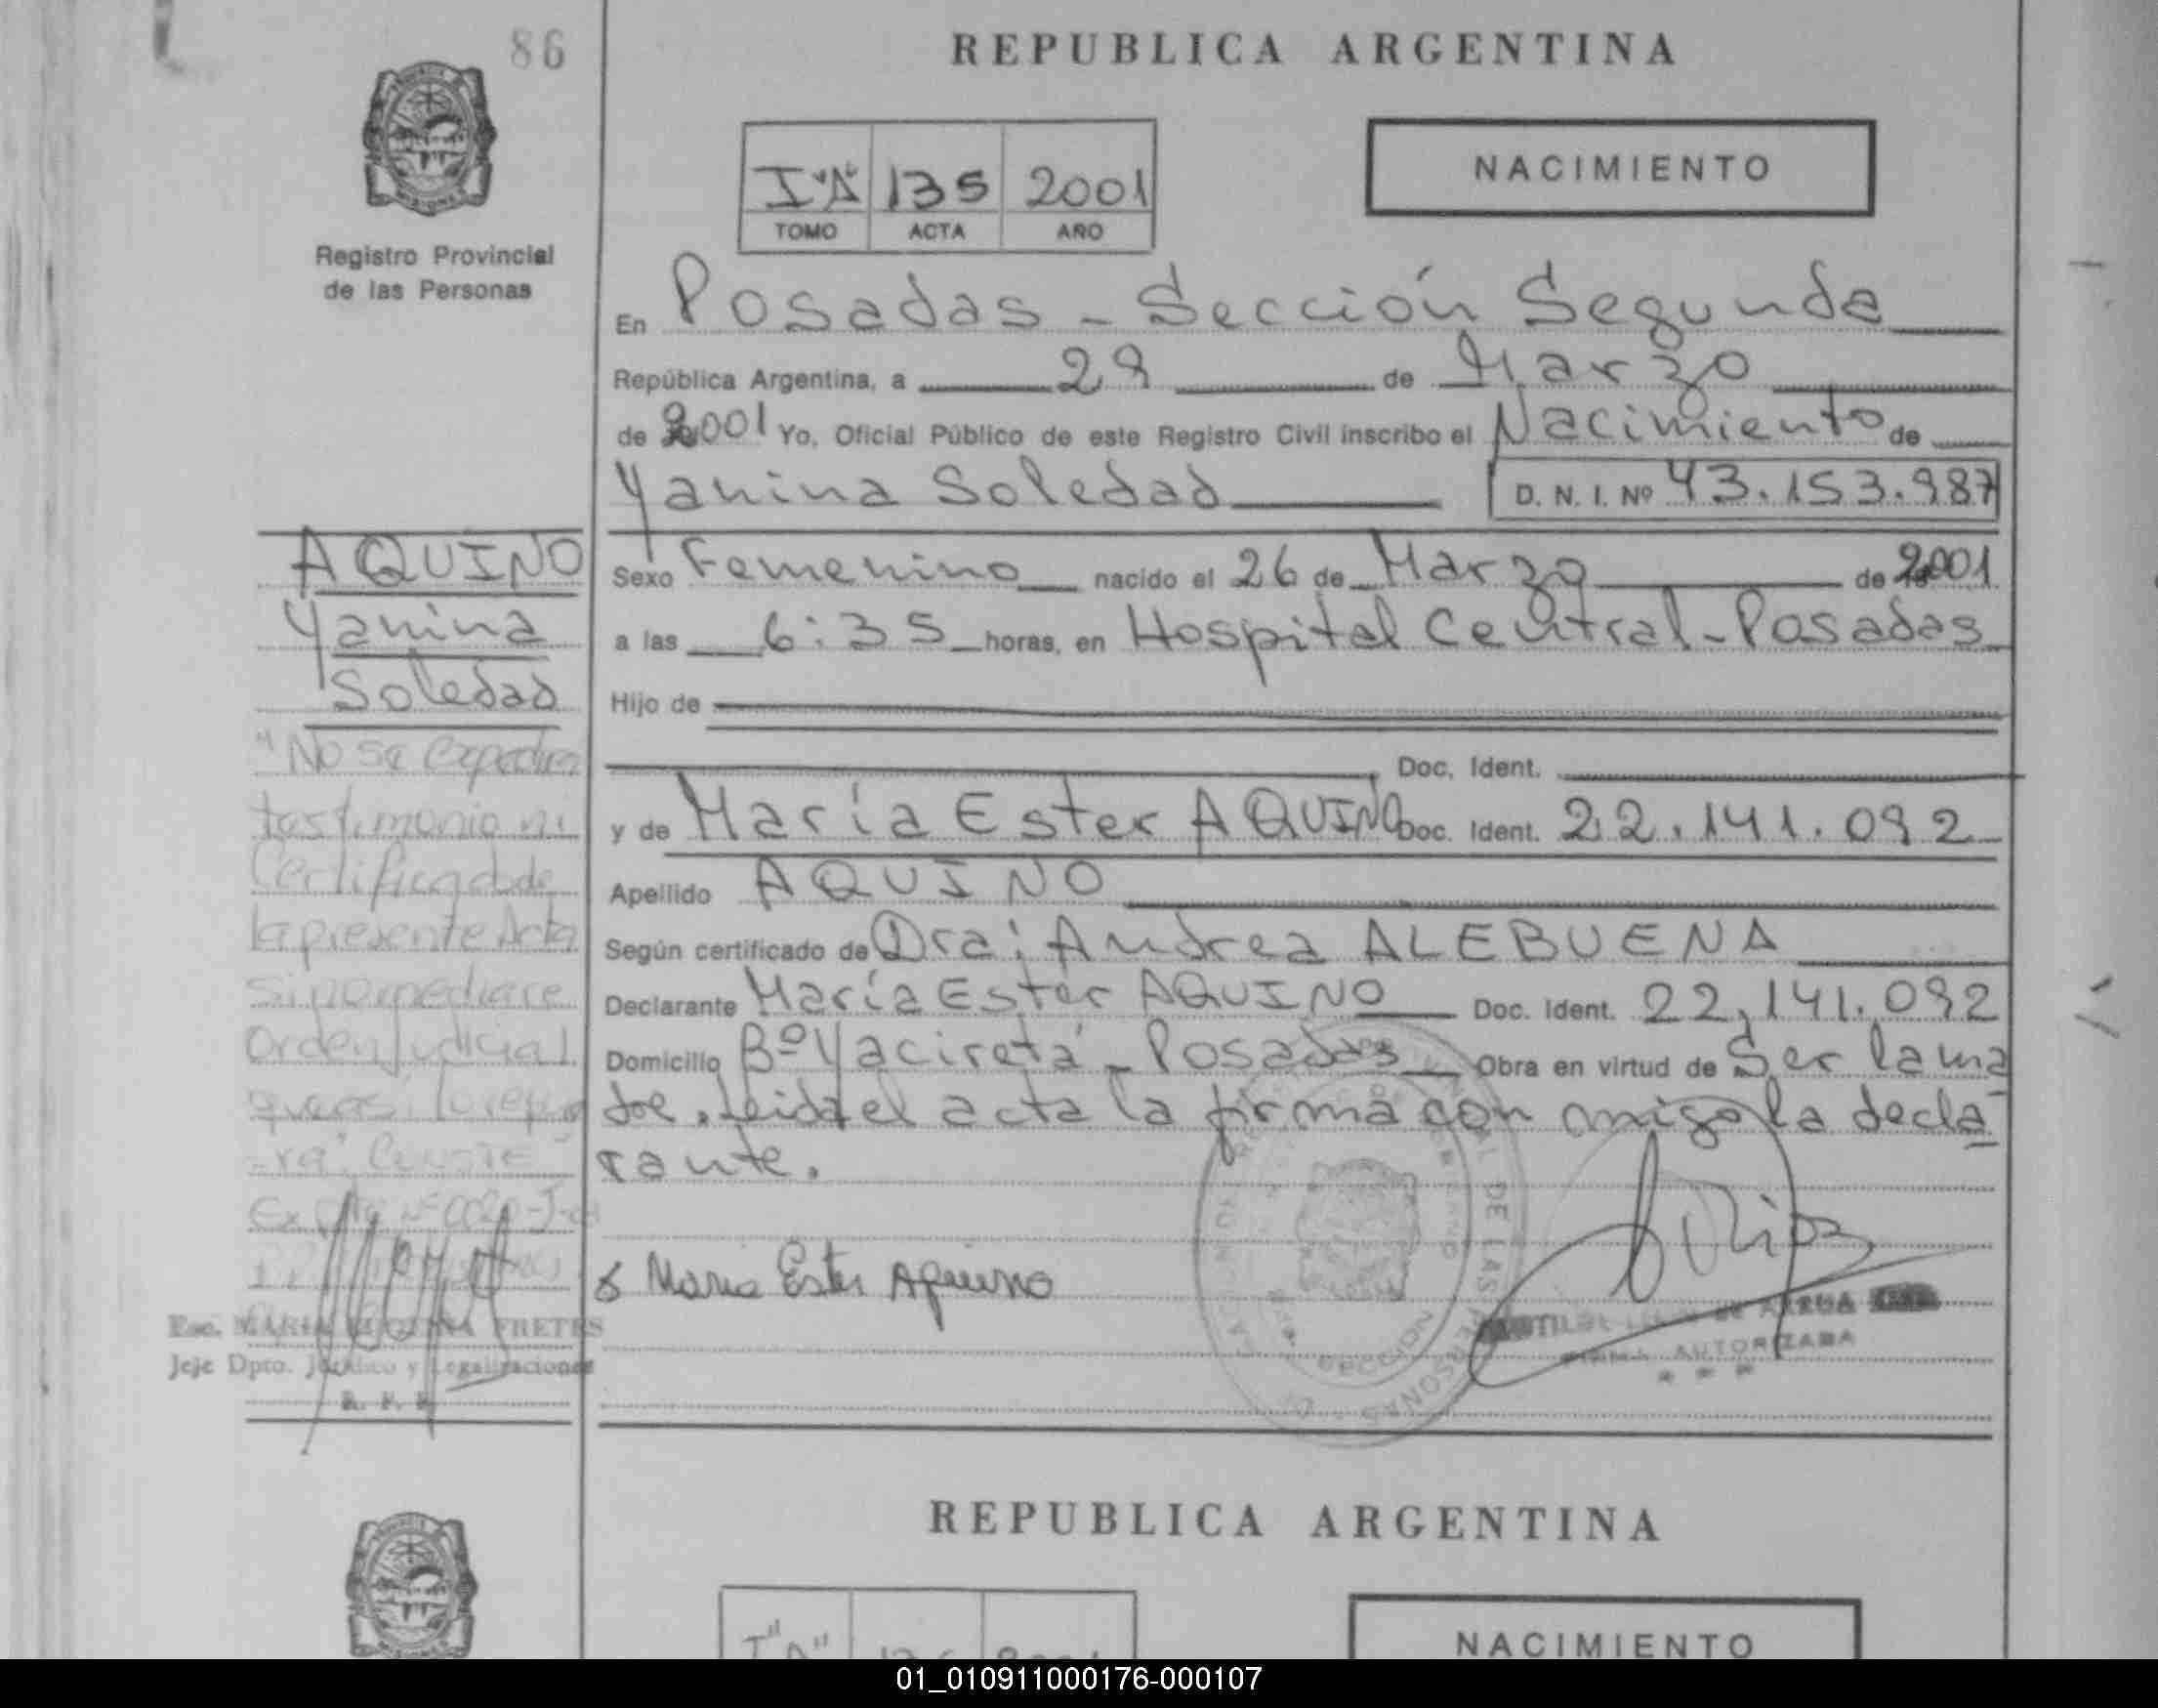 86
REPUBLICA ARGENTINA
I "A" 135 2001
TOMO ACTA AÑO
NACIMIENTO
Registro Provincial
de las Personas
En Posadas - Sección Segunda
República Argentina, a 29 de Marzo
de 2001 Yo, Oficial Público de este Registro Civil inscribo el Nacimiento de
Yanina Soledad D. N. I. Nº 43.153.987
Sexo Femenino nacido el 26 de Marzo de 2001
a las 6:35 horas, en Hospital Central - Posadas
Hijo de
Doc. Ident.
y de María Ester AQUINO Doc. Ident. 22.141.092
Apellido AQUINO
Según certificado de Dra: Andrea ALEBUENA
Declarante María Ester AQUINO Doc. Ident. 22.141.092
Domicilio Bº Yacireta - Posadas Obra en virtud de Ser la ma
dre. Leida el acta la firma con migo la decla
rante.
Maria Ester Aquino
AQUINO
Yanina
Soledad
"No se expedira
testimonio ni
Certificado de
la presente Acta
si no mediare
Orden Judicial
que así lo requie
-ra"
MARIA FRETES
Jefe Dpto. Jurídico y Legalizaciones
R. P. P.
DE LAS PERSONAS
FIRMA AUTORIZADA
REPUBLICA ARGENTINA
I "A"
NACIMIENTO
01_010911000176-000107